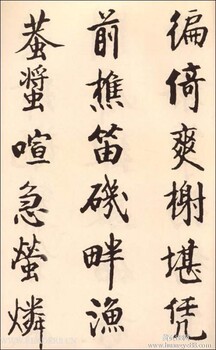 徧倚爽榭堪凭
前樵笛磯畔漁
蛬螿喧急螢燐